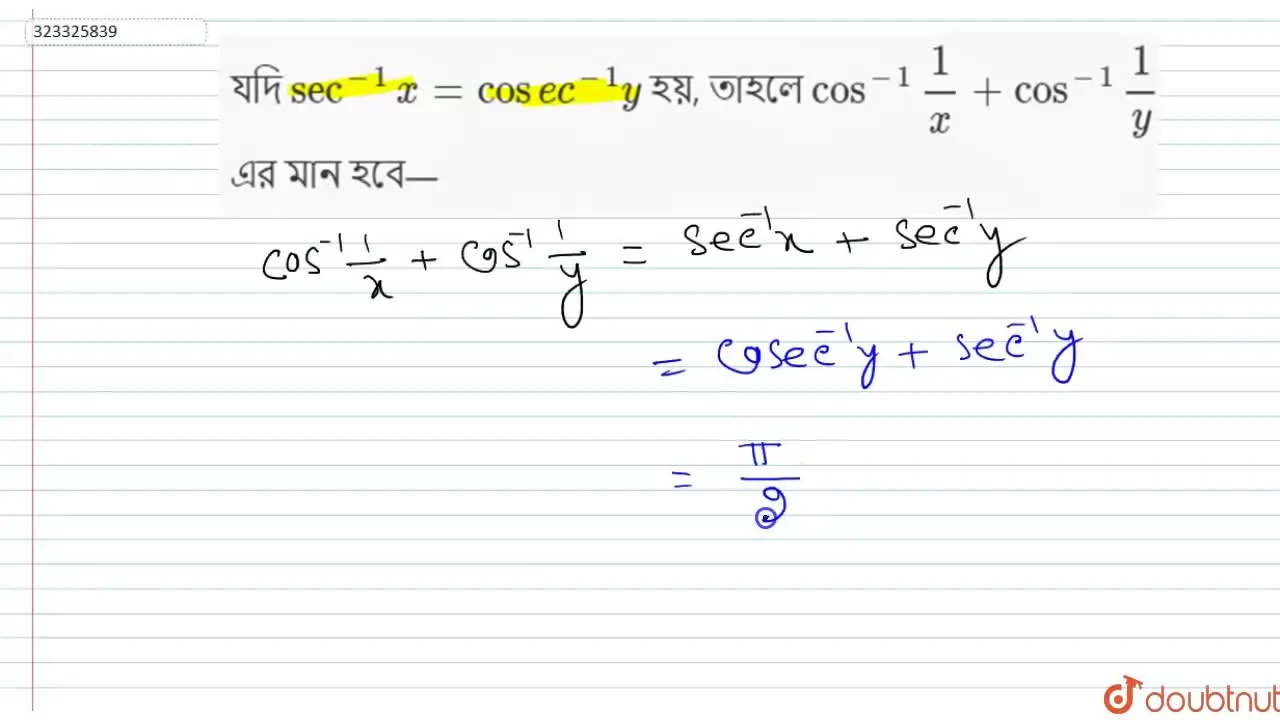 323325839
যদি sec⁻¹ x = cosec⁻¹ y হয়, তাহলে cos⁻¹ 1/x + cos⁻¹ 1/y
এর মান হবে—
cos⁻¹ 1/x + cos⁻¹ 1/y = sec⁻¹x + sec⁻¹y
= cosec⁻¹y + sec⁻¹y
= π/2
doubtnut